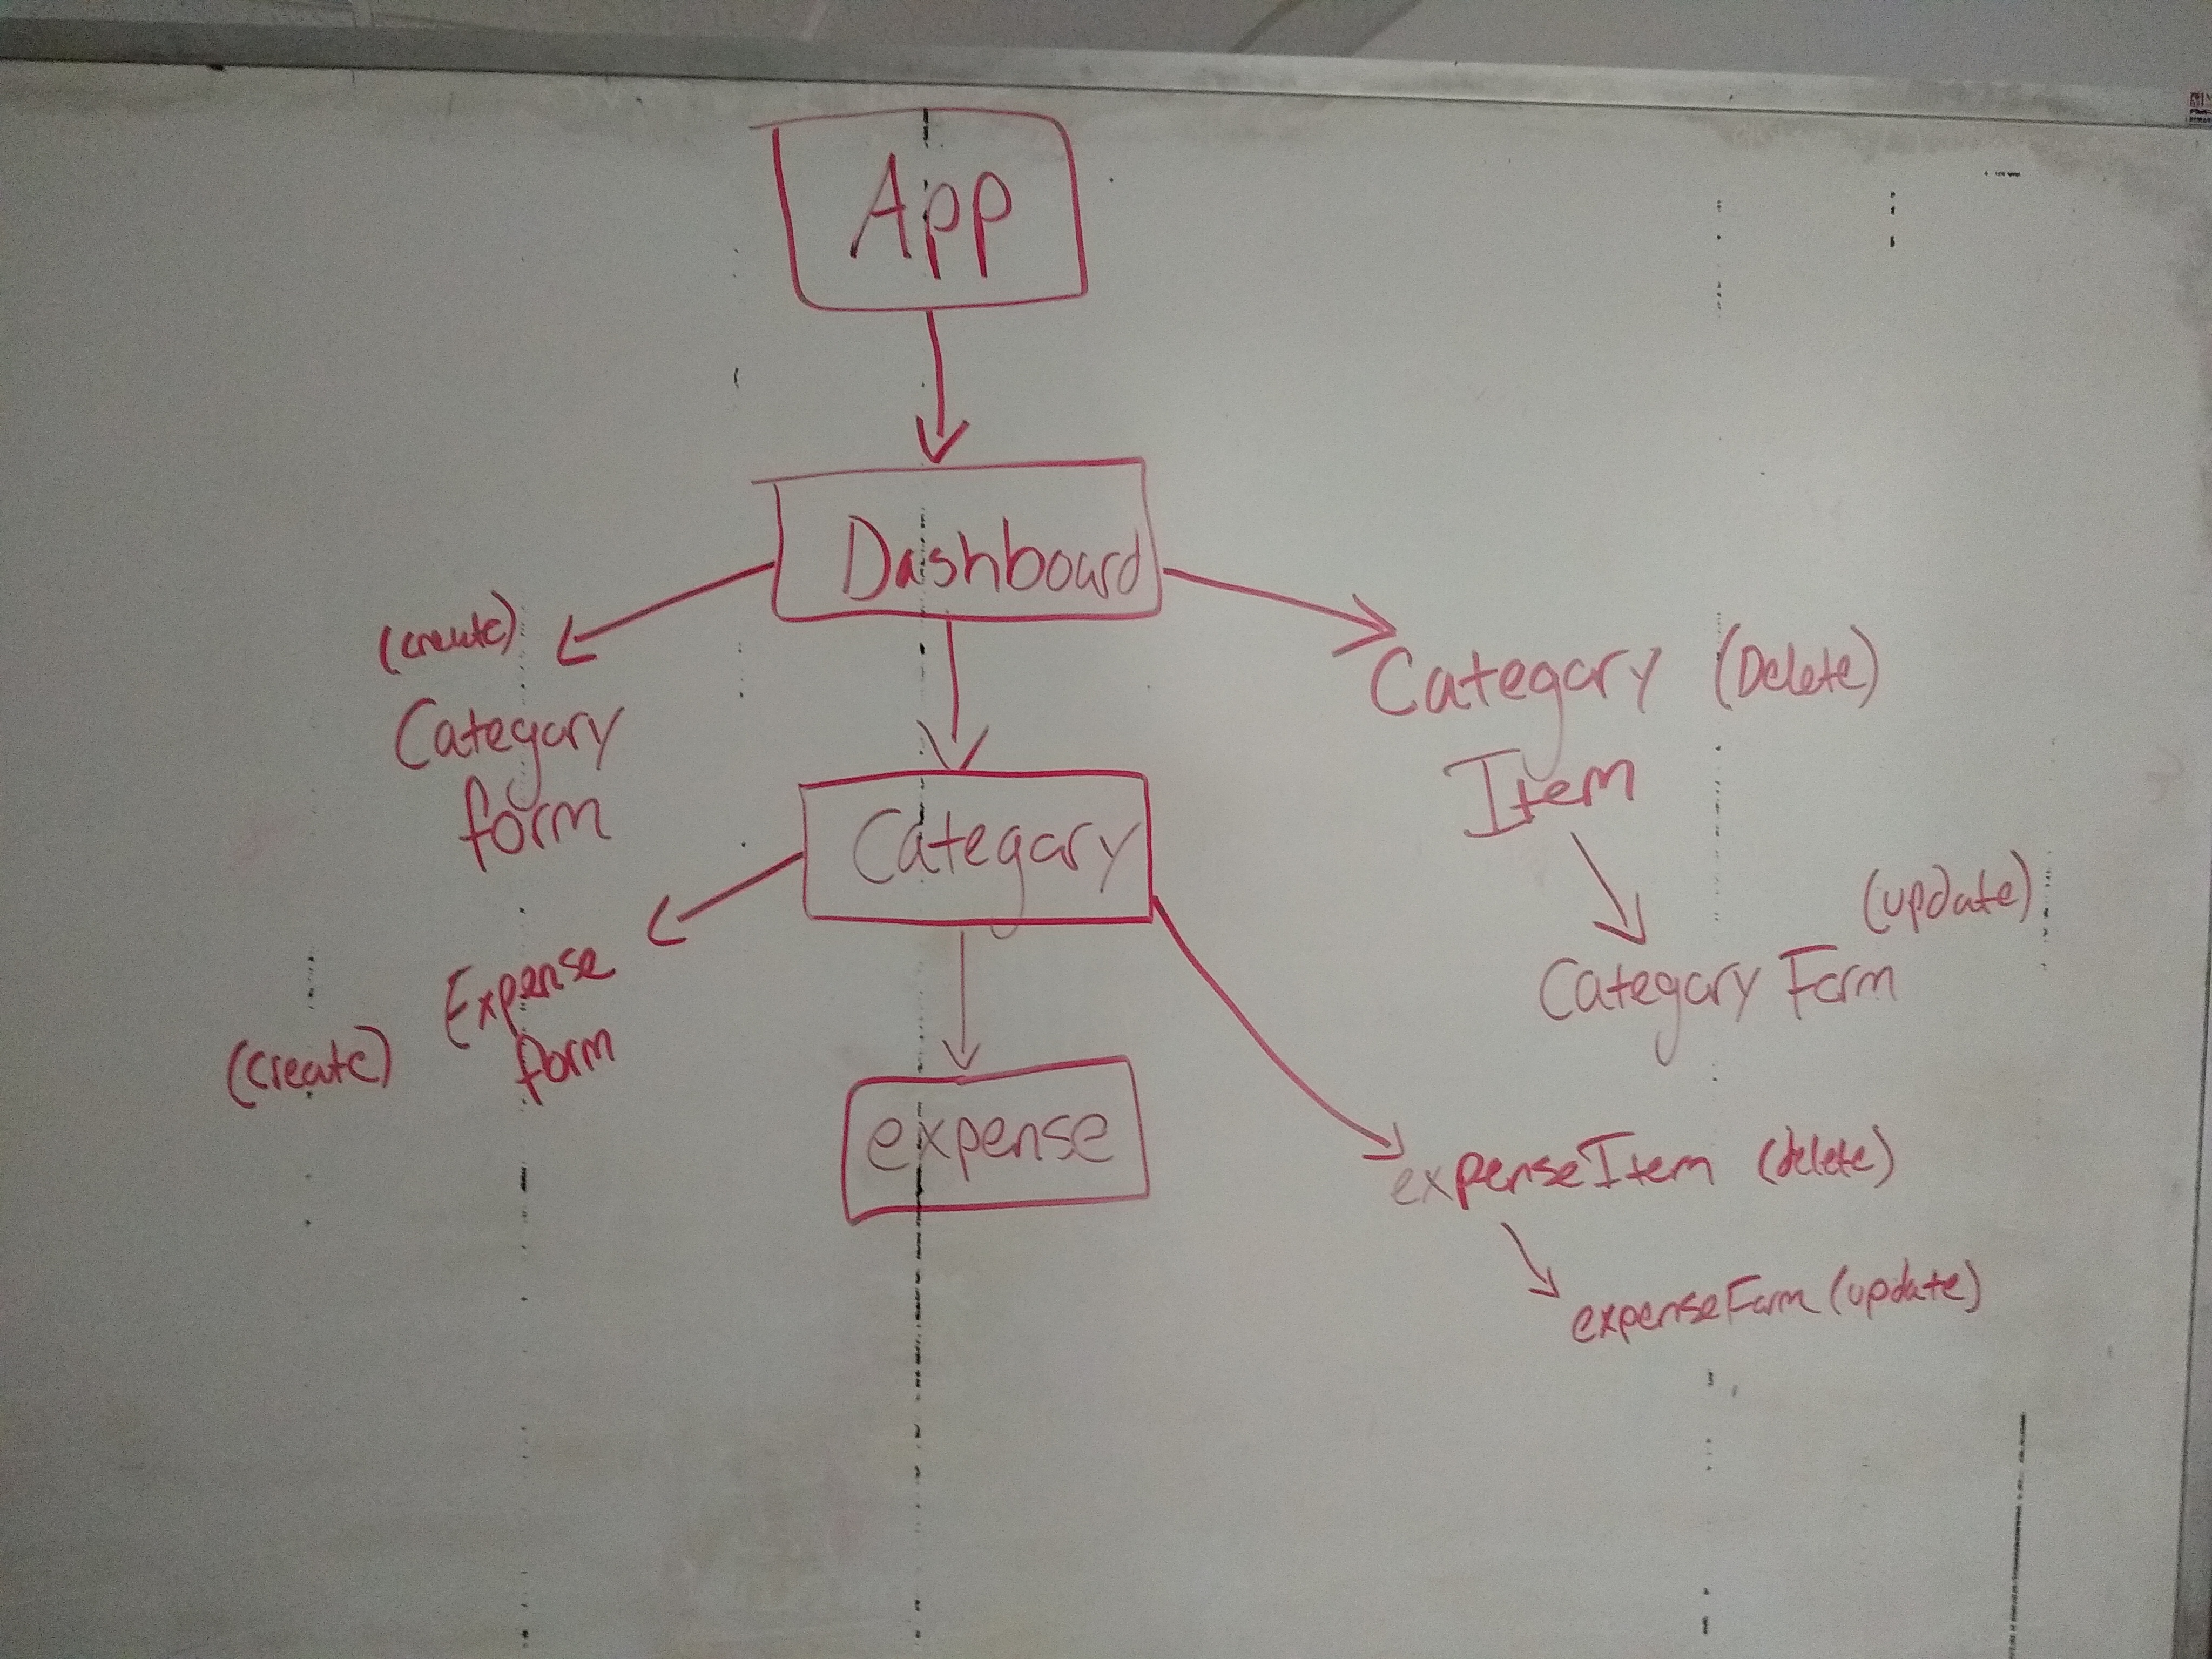 App
Dashboard
(create)
Category
form
Category (Delete)
Item
Category
(update)
Category Form
Expense
form
(create)
expense
expenseItem (delete)
expenseForm (update)